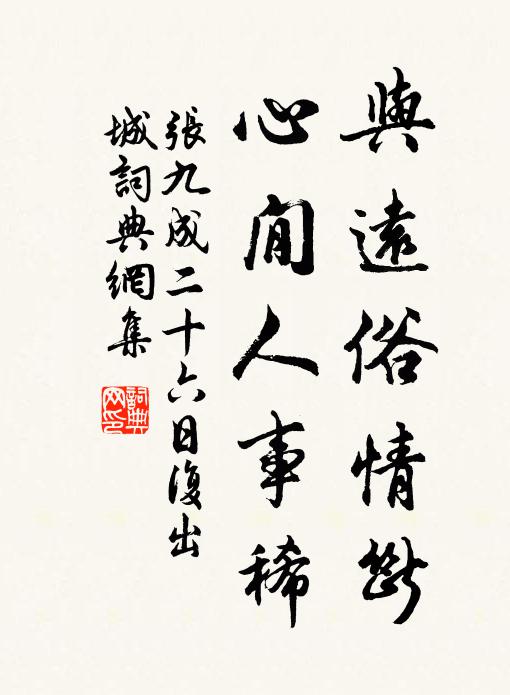 與遠俗情斷
心閒人事稀
張九成二十六日復出
城詞典網集
詞典網印